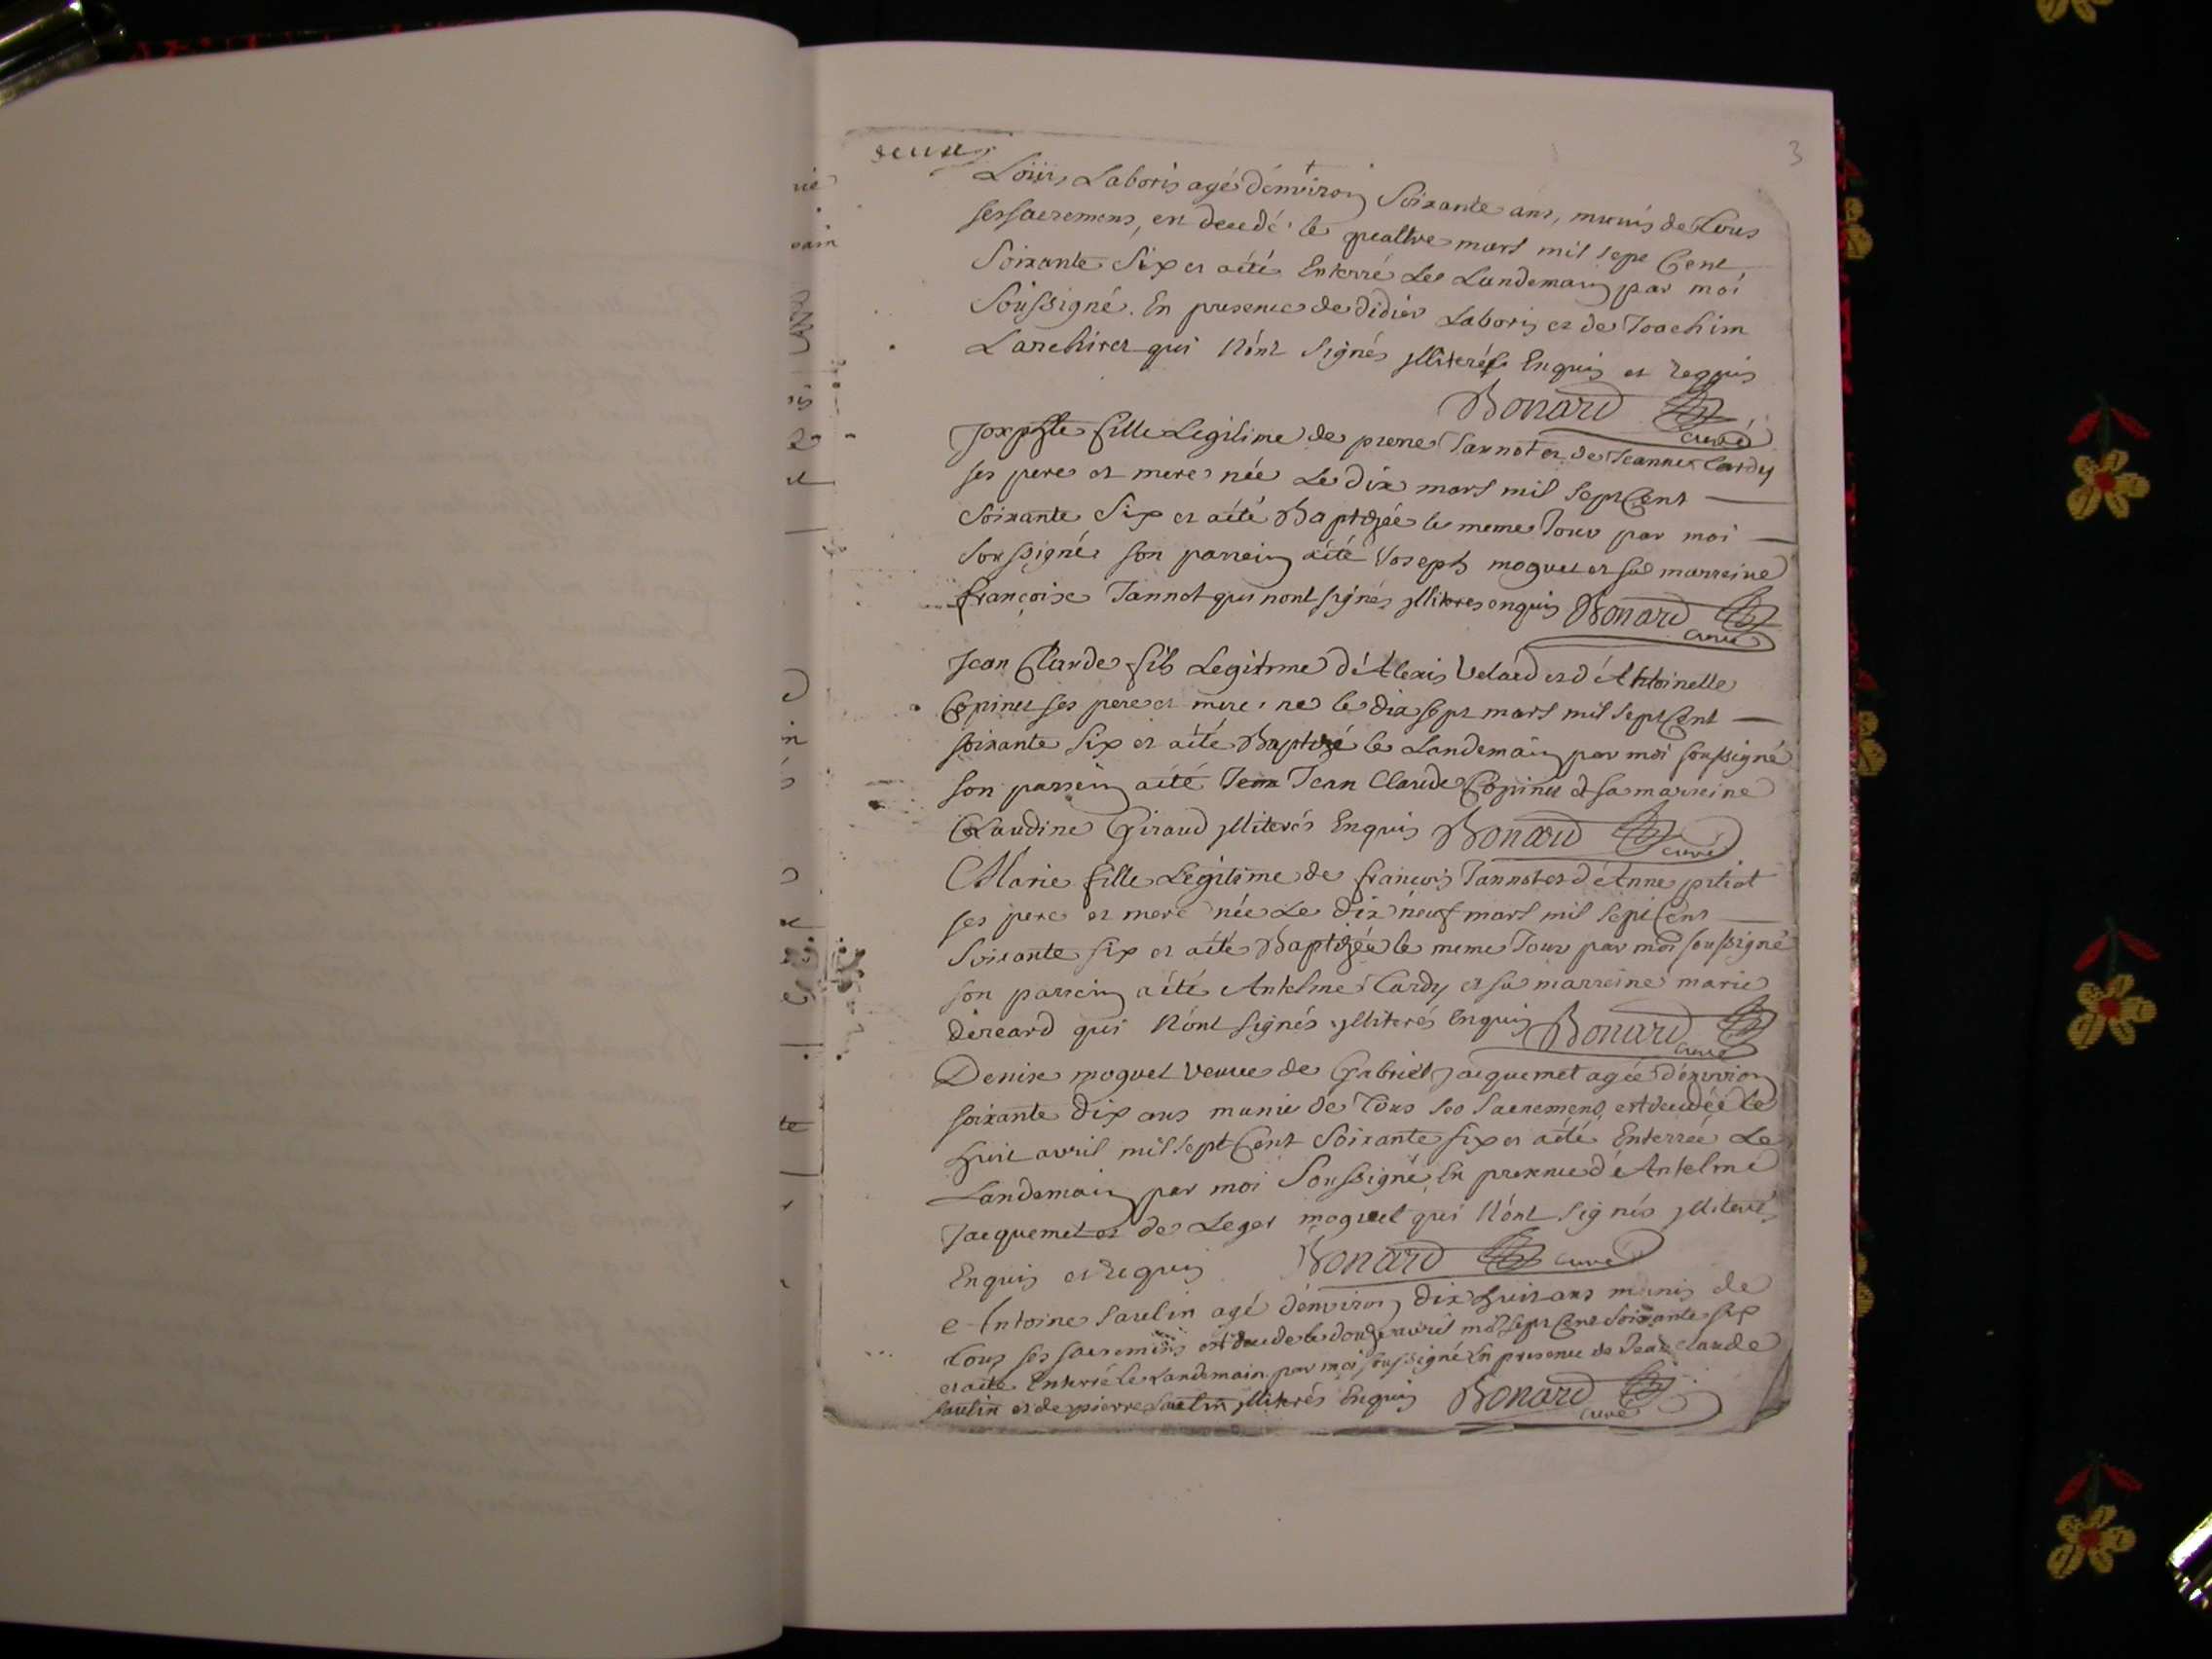 3
deux
Loüis Laboris agé d'environ Soixante ans, munis de tous
ses sacremens, est decedé le quattre mars mil sept Cent
Soixante Six et a été Enterré Le Landemain par moi
Soussigné. En presence de didier Laboris et de Joachim
Lanchiret qui N'ont Signés illiterés Enquis et requis
Bonard curé
Josephte fille Legitime de pierre Jannot et de Jeanne Cardy
ses pere et mere née Le dix mars mil Sept Cent
Soixante Six et a été Baptizée le meme Jour par moi
Soussigné son parrein a été Joseph moguet et sa marreine
françoise Jannot qui n'ont signés illiteres enquis Bonard
curé
Jean Claude fils Legitime d'Alexis Velard et d'Antoinette
Copinet ses pere et mere, né le dix sept mars mil Sept Cent
soixante six et a été Baptizé le Landemain par moi soussigné
son parrein a été Jean Claude Copinet et sa marreine
Claudine Giraud illiterés Enquis Bonard curé
Marie fille Legitime de francois Jannot et d'Anne pitiot
ses pere et mere née Le dix neuf mars mil Sept Cent
Soixante six et a été Baptizée le meme Jour par moi soussigné
son parrein a été Antelme Cardy et sa marreine marie
dereard qui N'ont signés illiterés Enquis Bonard
curé
Denise moguet veuve de Gabriel Jacquemet agée d'environ
soixante dix ans munie de tous ses Sacremens est decedée le
huit avril mil sept Cent Soixante six et a été Enterrée Le
Landemain par moi Soussigné En presence d'Antelme
Jacquemet et de Leger moguet qui N'ont Signés illiterés
Enquis et requis Bonard curé
Antoine Saulin agé d'environ dix huit ans munis de
tous ses sacremens est decedé le douze avril mil sept Cent Soixante six
et a été Enterré le Landemain par moi soussigné En presence de Jean Claude
Saulin et de pierre Saulin illiterés Enquis Bonard
curé